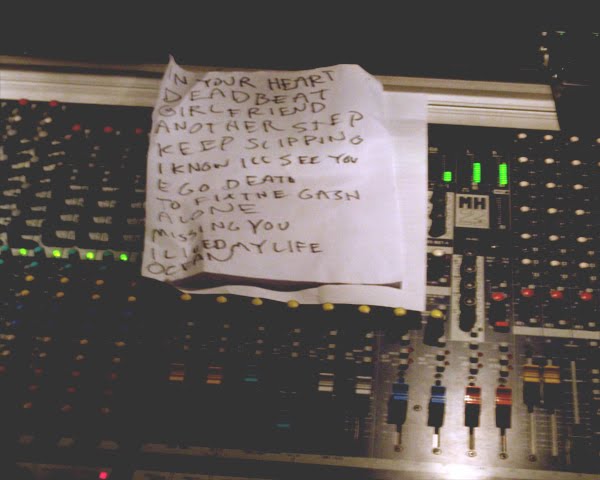 IN YOUR HEART
DEADBEAT
GIRLFRIEND
ANOTHER STEP
KEEP SLIPPING
I KNOW I'LL SEE YOU
EGO DEATH
TO FIX THE GASH
ALONE
MISSING YOU
I LIVED MY LIFE
OCEAN
MH